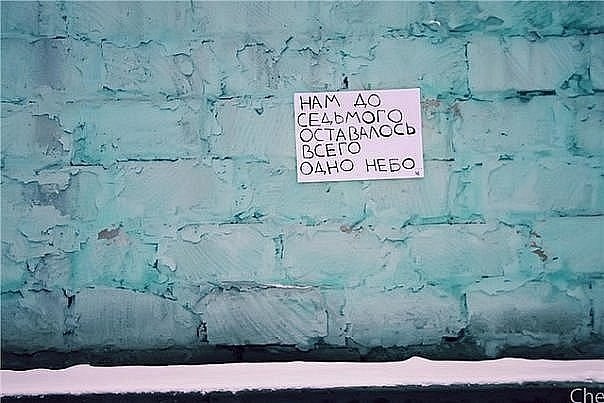 НАМ ДО
СЕДЬМОГО
ОСТАВАЛОСЬ
ВСЕГО
ОДНО НЕБО
Che